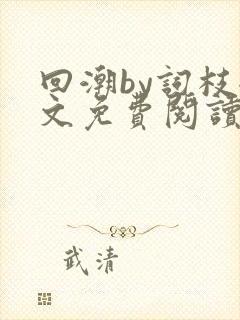 回潮by詞枝
文免費閱讀
武清